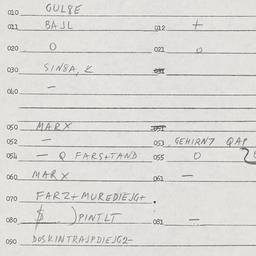 010 GUL8E
011 BAJL 012 +
020 O 021 O
030 SINBA, K 031
040 —
050 MARX 051
052 — 053 GEHIRN7 QAP
054 — Q FARS+TAND 055 O
060 MARX 061 —
070 FARZ+MUREDIEJG+.
080 $ )PINTLT 081 —
090 DOSKINTRAJPDIEJG2-